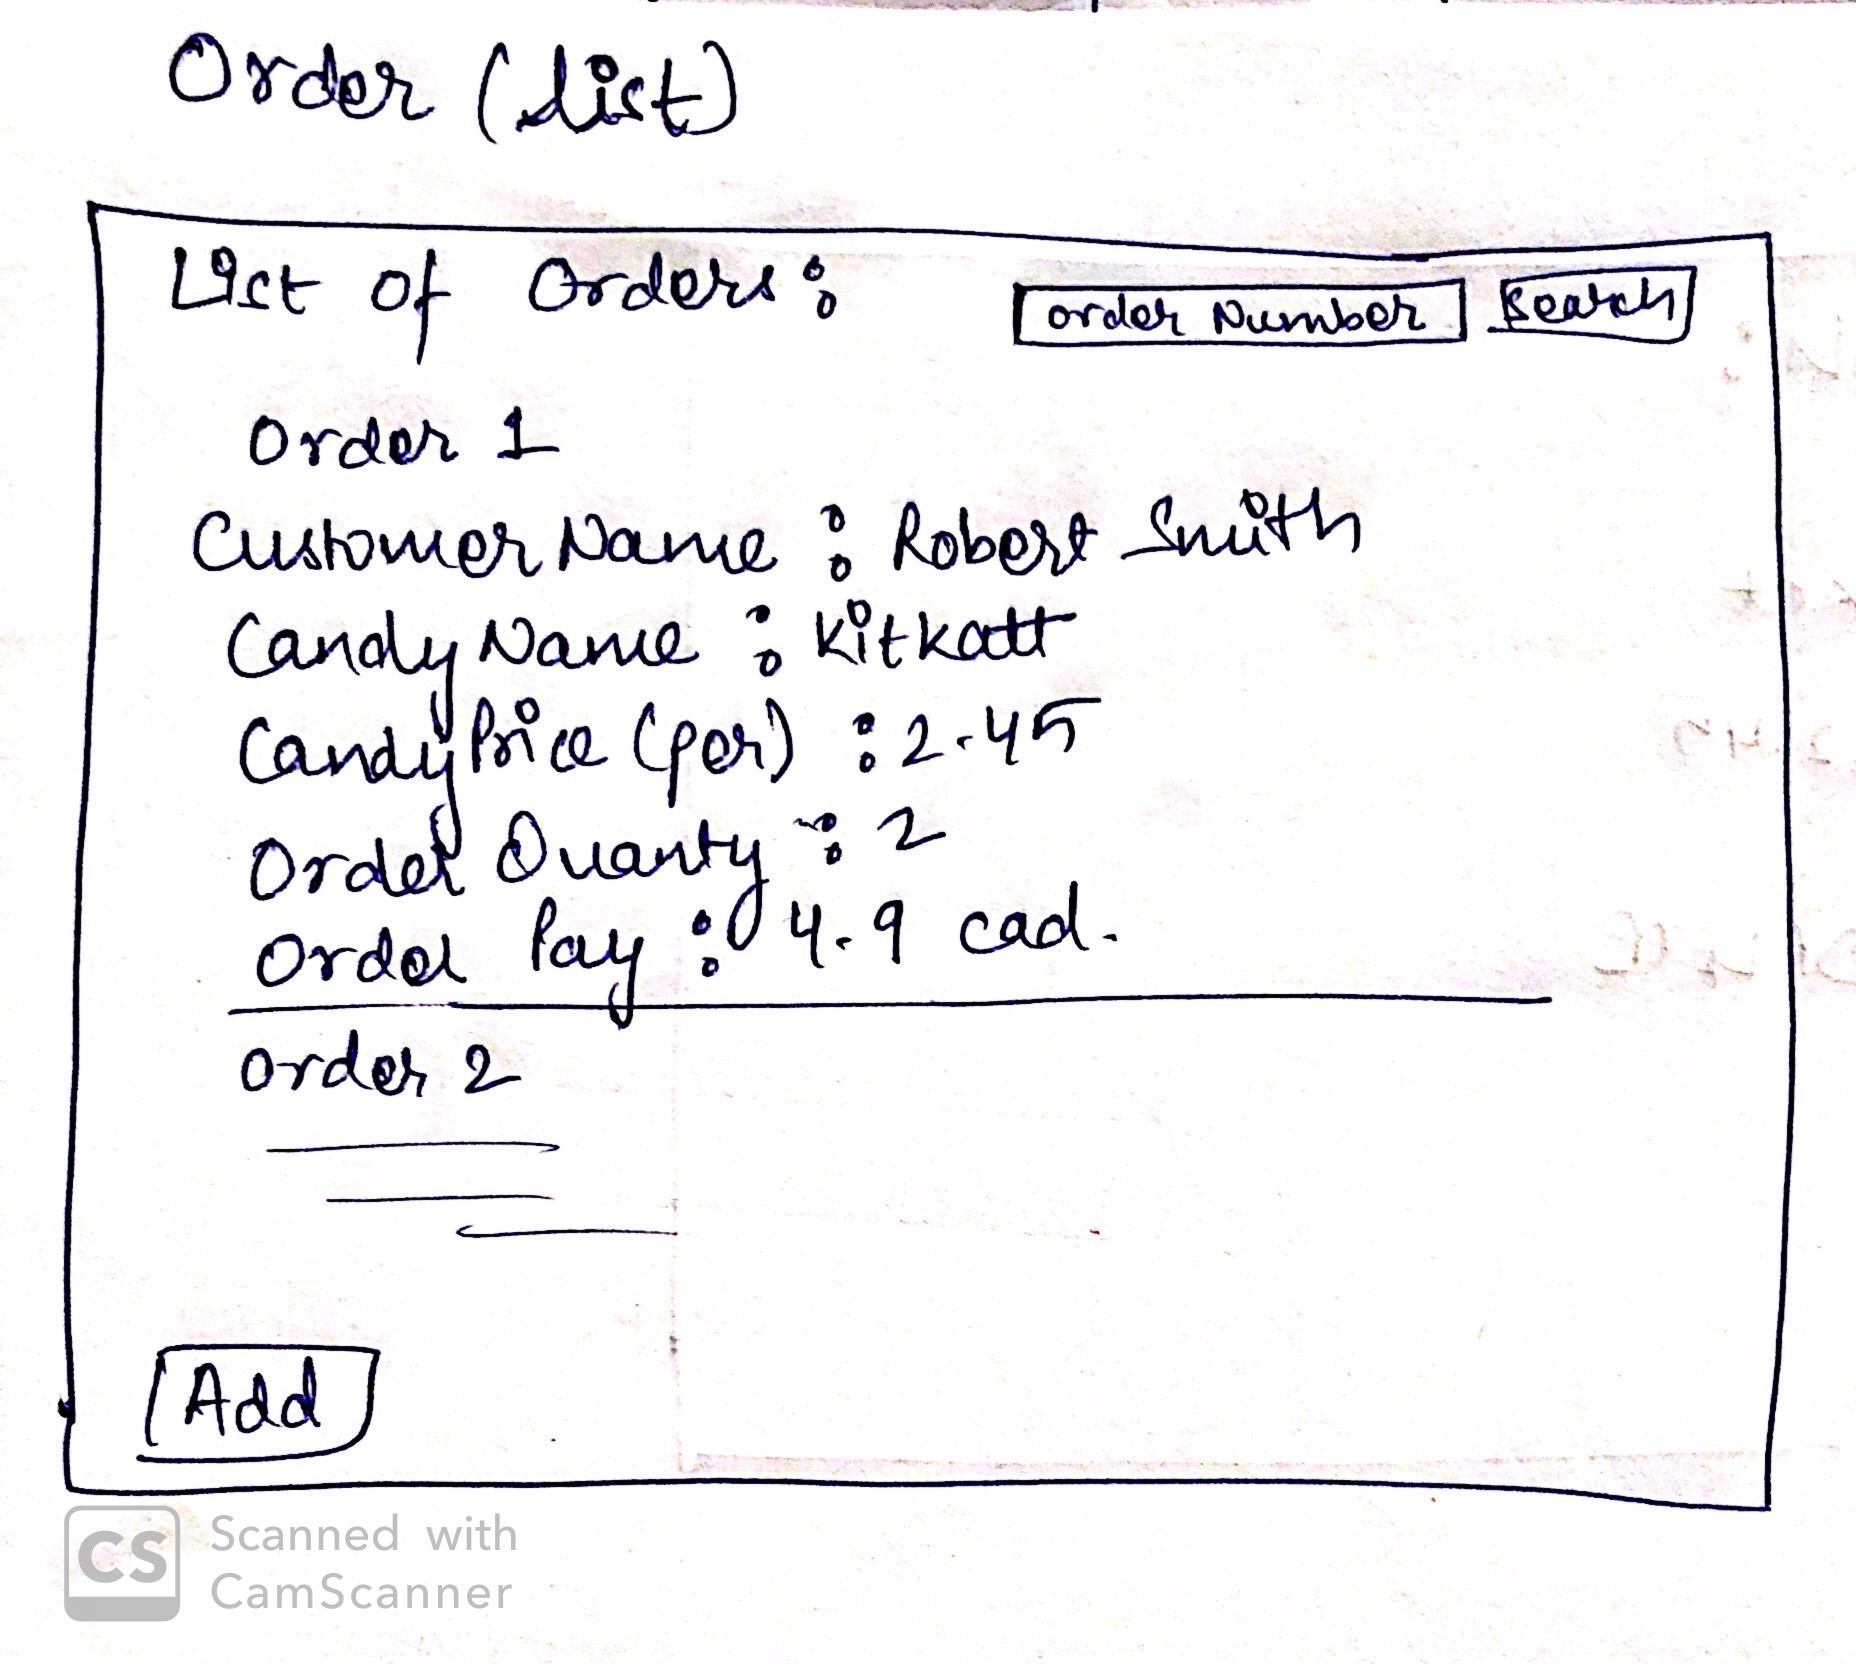 Order (list)
List of Orders:
order Number Search
Order 1
Customer Name : Robert Smith
Candy Name : Kitkatt
Candy Price (per) : 2.45
Order Quanty : 2
Order Pay : 4.9 cad.
order 2
Add
CS Scanned with
CamScanner